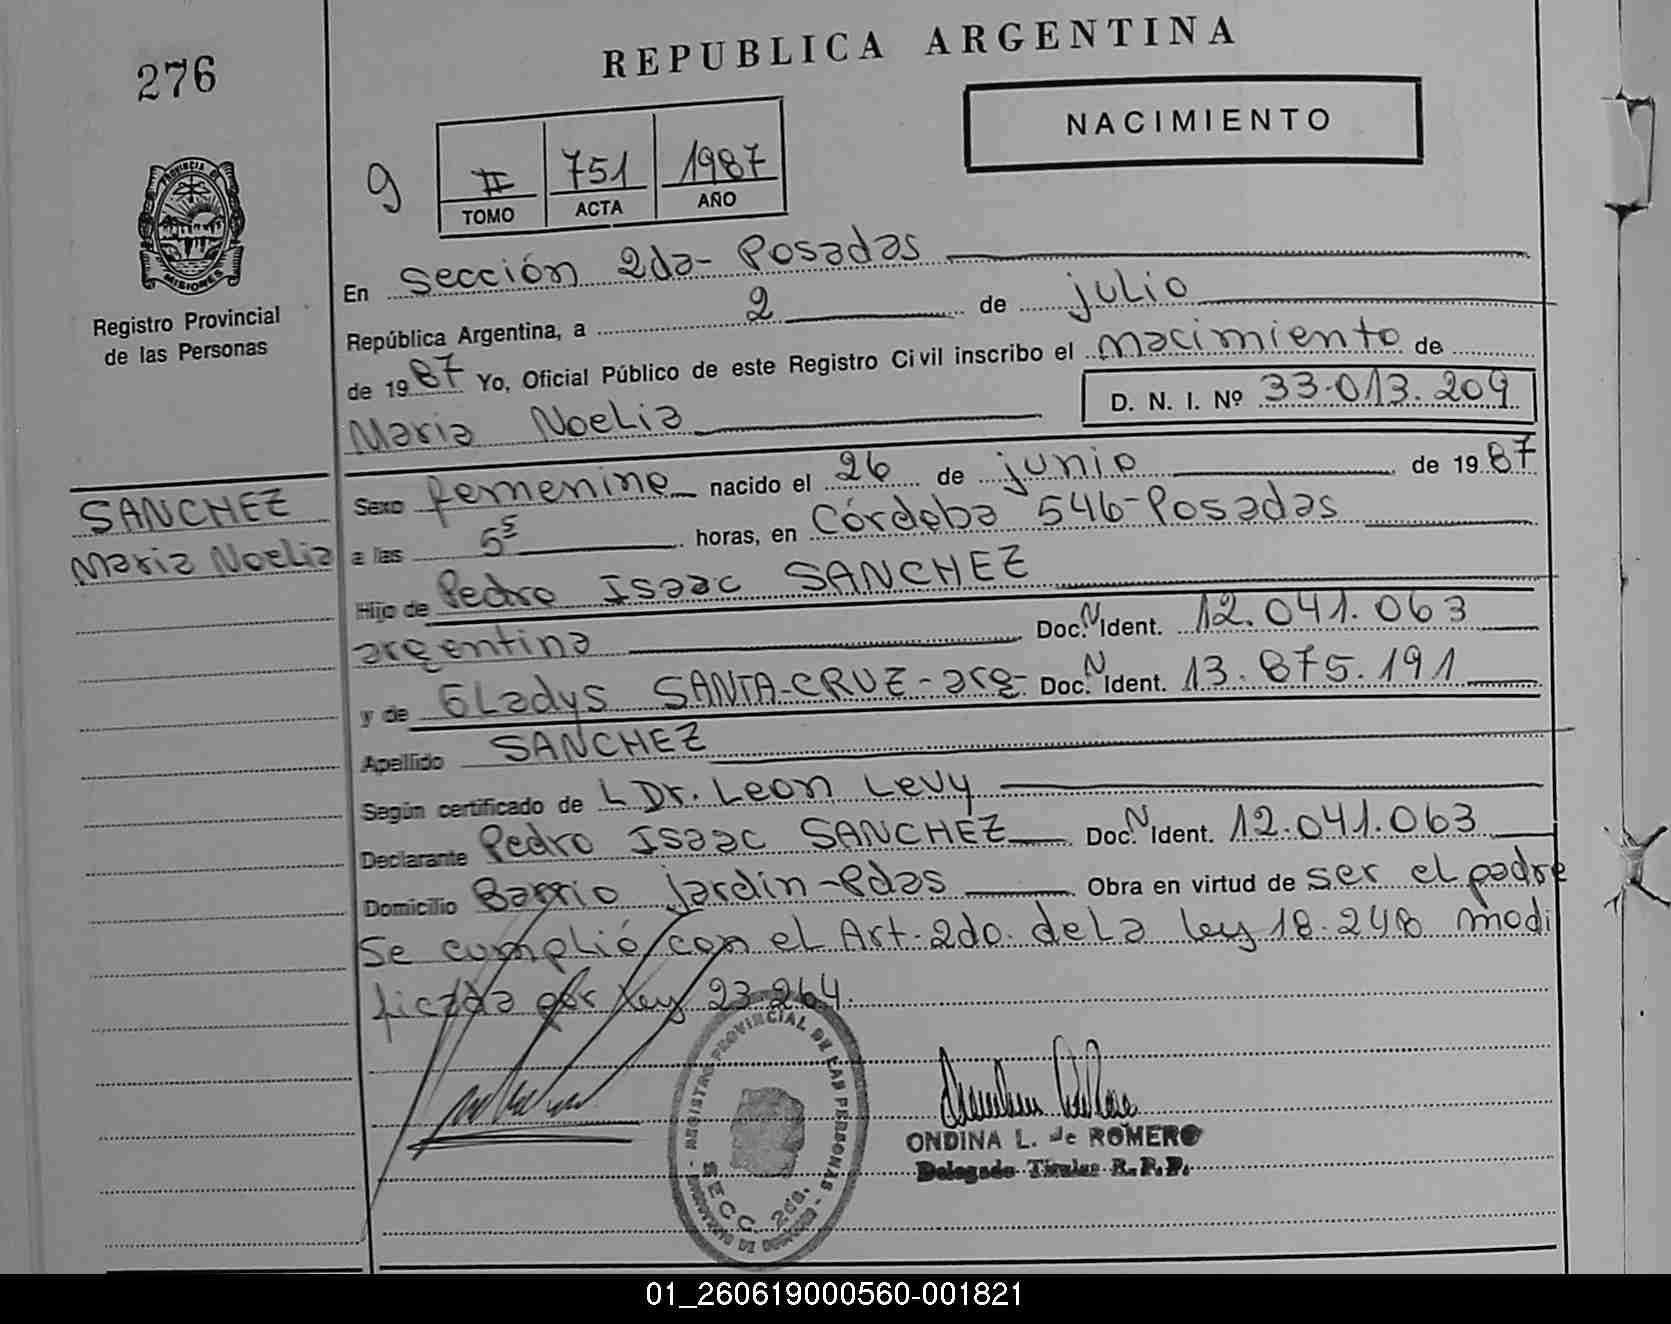 276
REPUBLICA ARGENTINA
NACIMIENTO
9
II 751 1987
TOMO ACTA AÑO
PROVINCIA DE
MISIONES
Registro Provincial
de las Personas
En Sección 2da- Posadas
República Argentina, a 2 de julio
de 1987 Yo, Oficial Público de este Registro Civil inscribo el nacimiento de
Maria Noelia D. N. I. Nº 33.013.209
SANCHEZ
Maria Noelia
Sexo femenino nacido el 26 de junio de 1987
a las 5⁵ horas, en Córdoba 546-Posadas
Hijo de Pedro Isaac SANCHEZ
argentina Doc. N Ident. 12.041.063
y de Gladys SANTA-CRUZ-arg- Doc. N Ident. 13.875.191
Apellido SANCHEZ
Según certificado de L Dr. Leon Levy
Declarante Pedro Isaac SANCHEZ Doc. N Ident. 12.041.063
Domicilio Barrio Jardin-Pdas Obra en virtud de ser el padre
Se cumplió con el Art. 2do. de la ley 18.248 modi
ficada por Ley 23.264.
REGISTRO PROVINCIAL DE LAS PERSONAS
SECC. 2da.
ONDINA L. de ROMERO
Delegado Titular R.P.P.
01_260619000560-001821